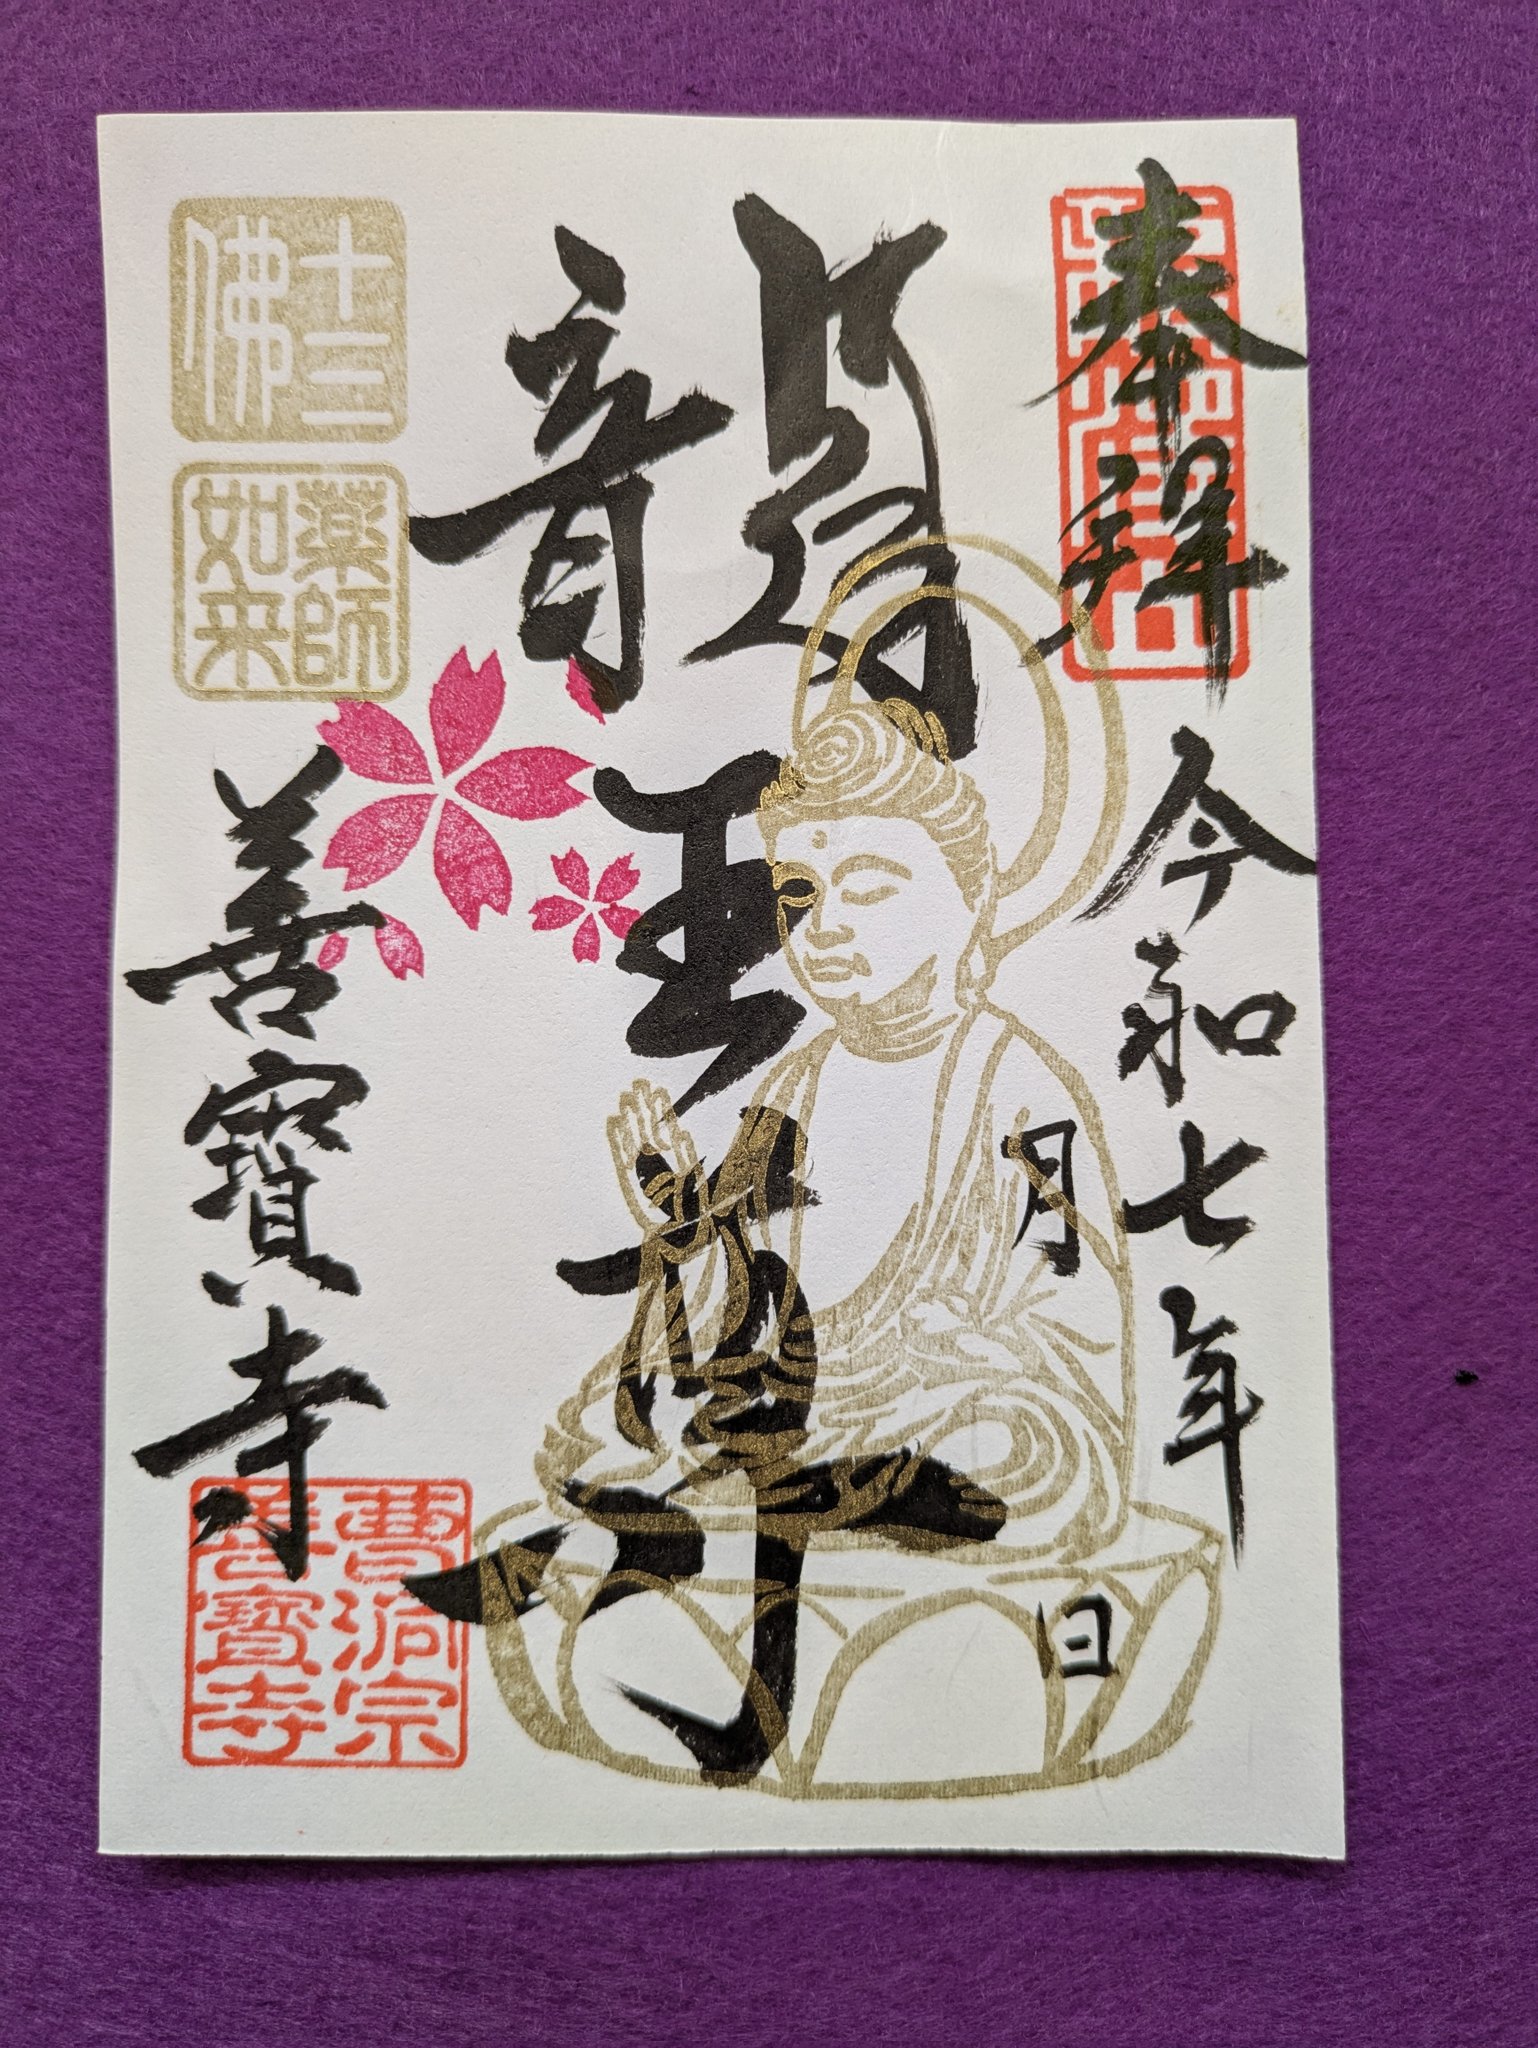 奉拝
令和七年
月 日
龍王尊
十三
佛
薬師
如来
善寳寺
曹洞宗
善寳寺